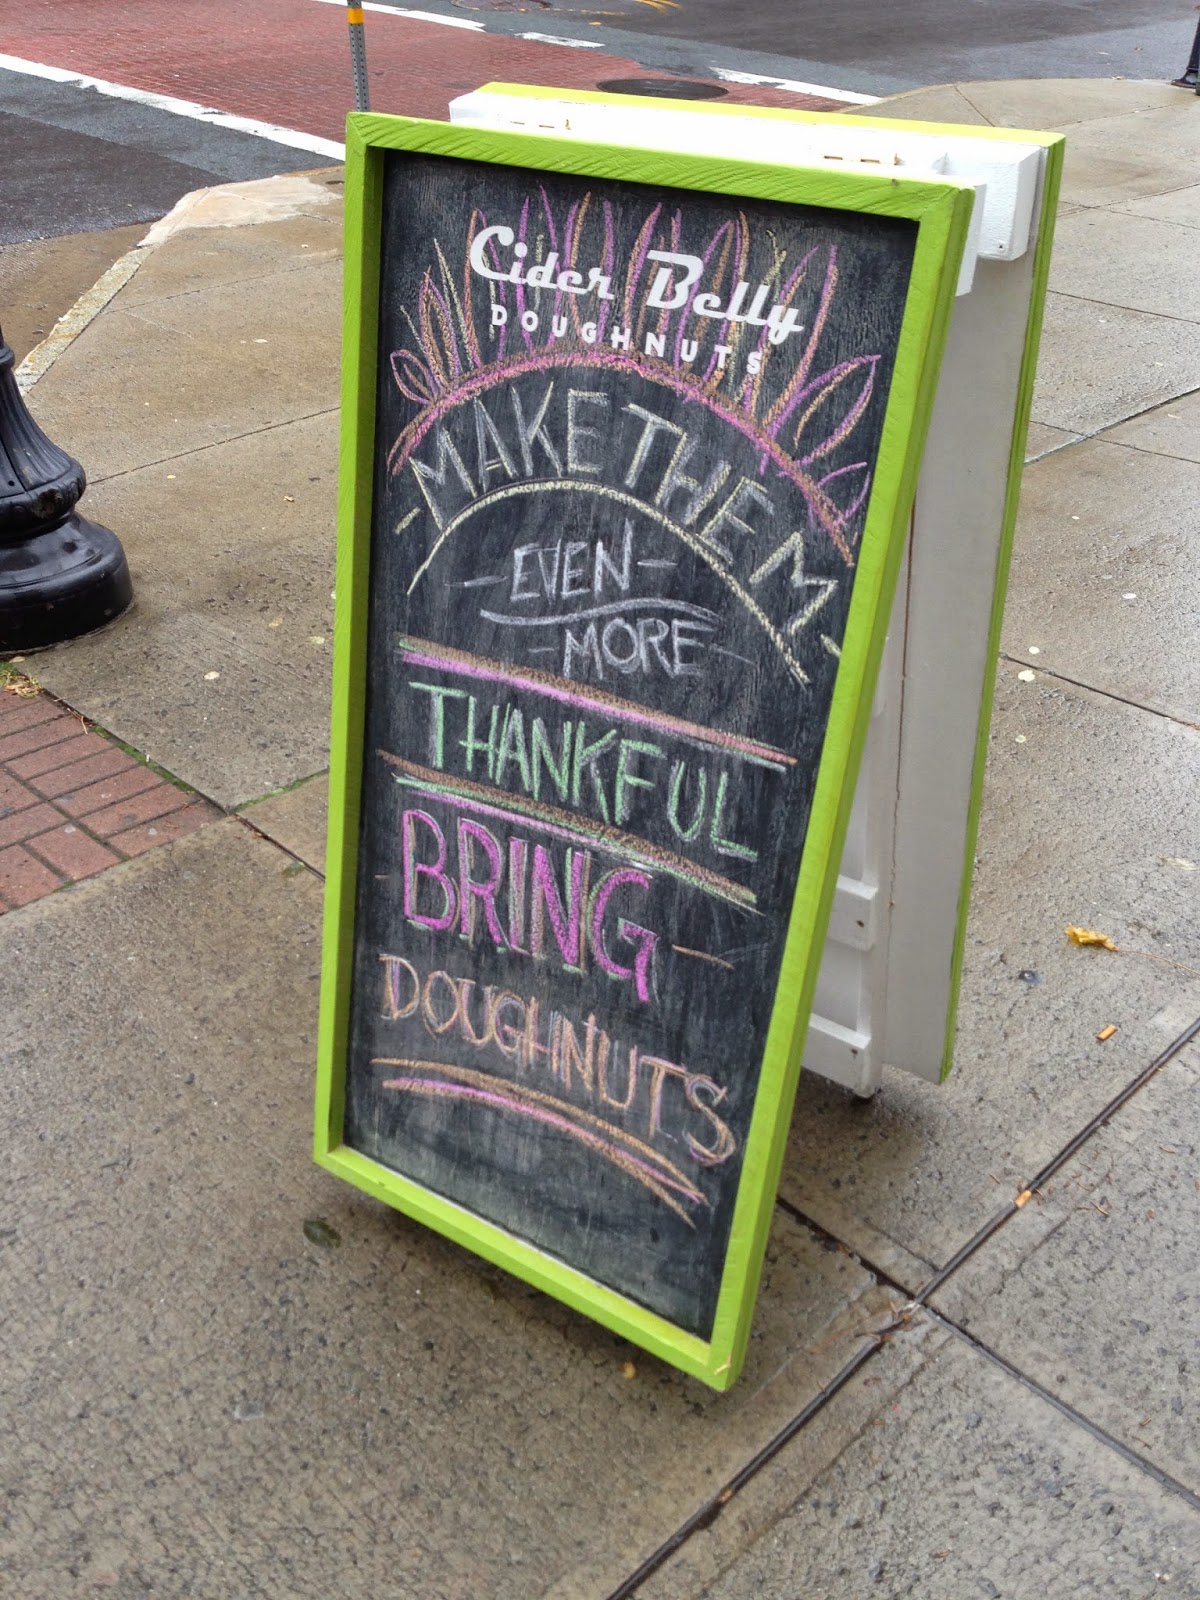 Cider Belly
DOUGHNUTS
MAKE THEM
EVEN
MORE
THANKFUL
BRING
DOUGHNUTS